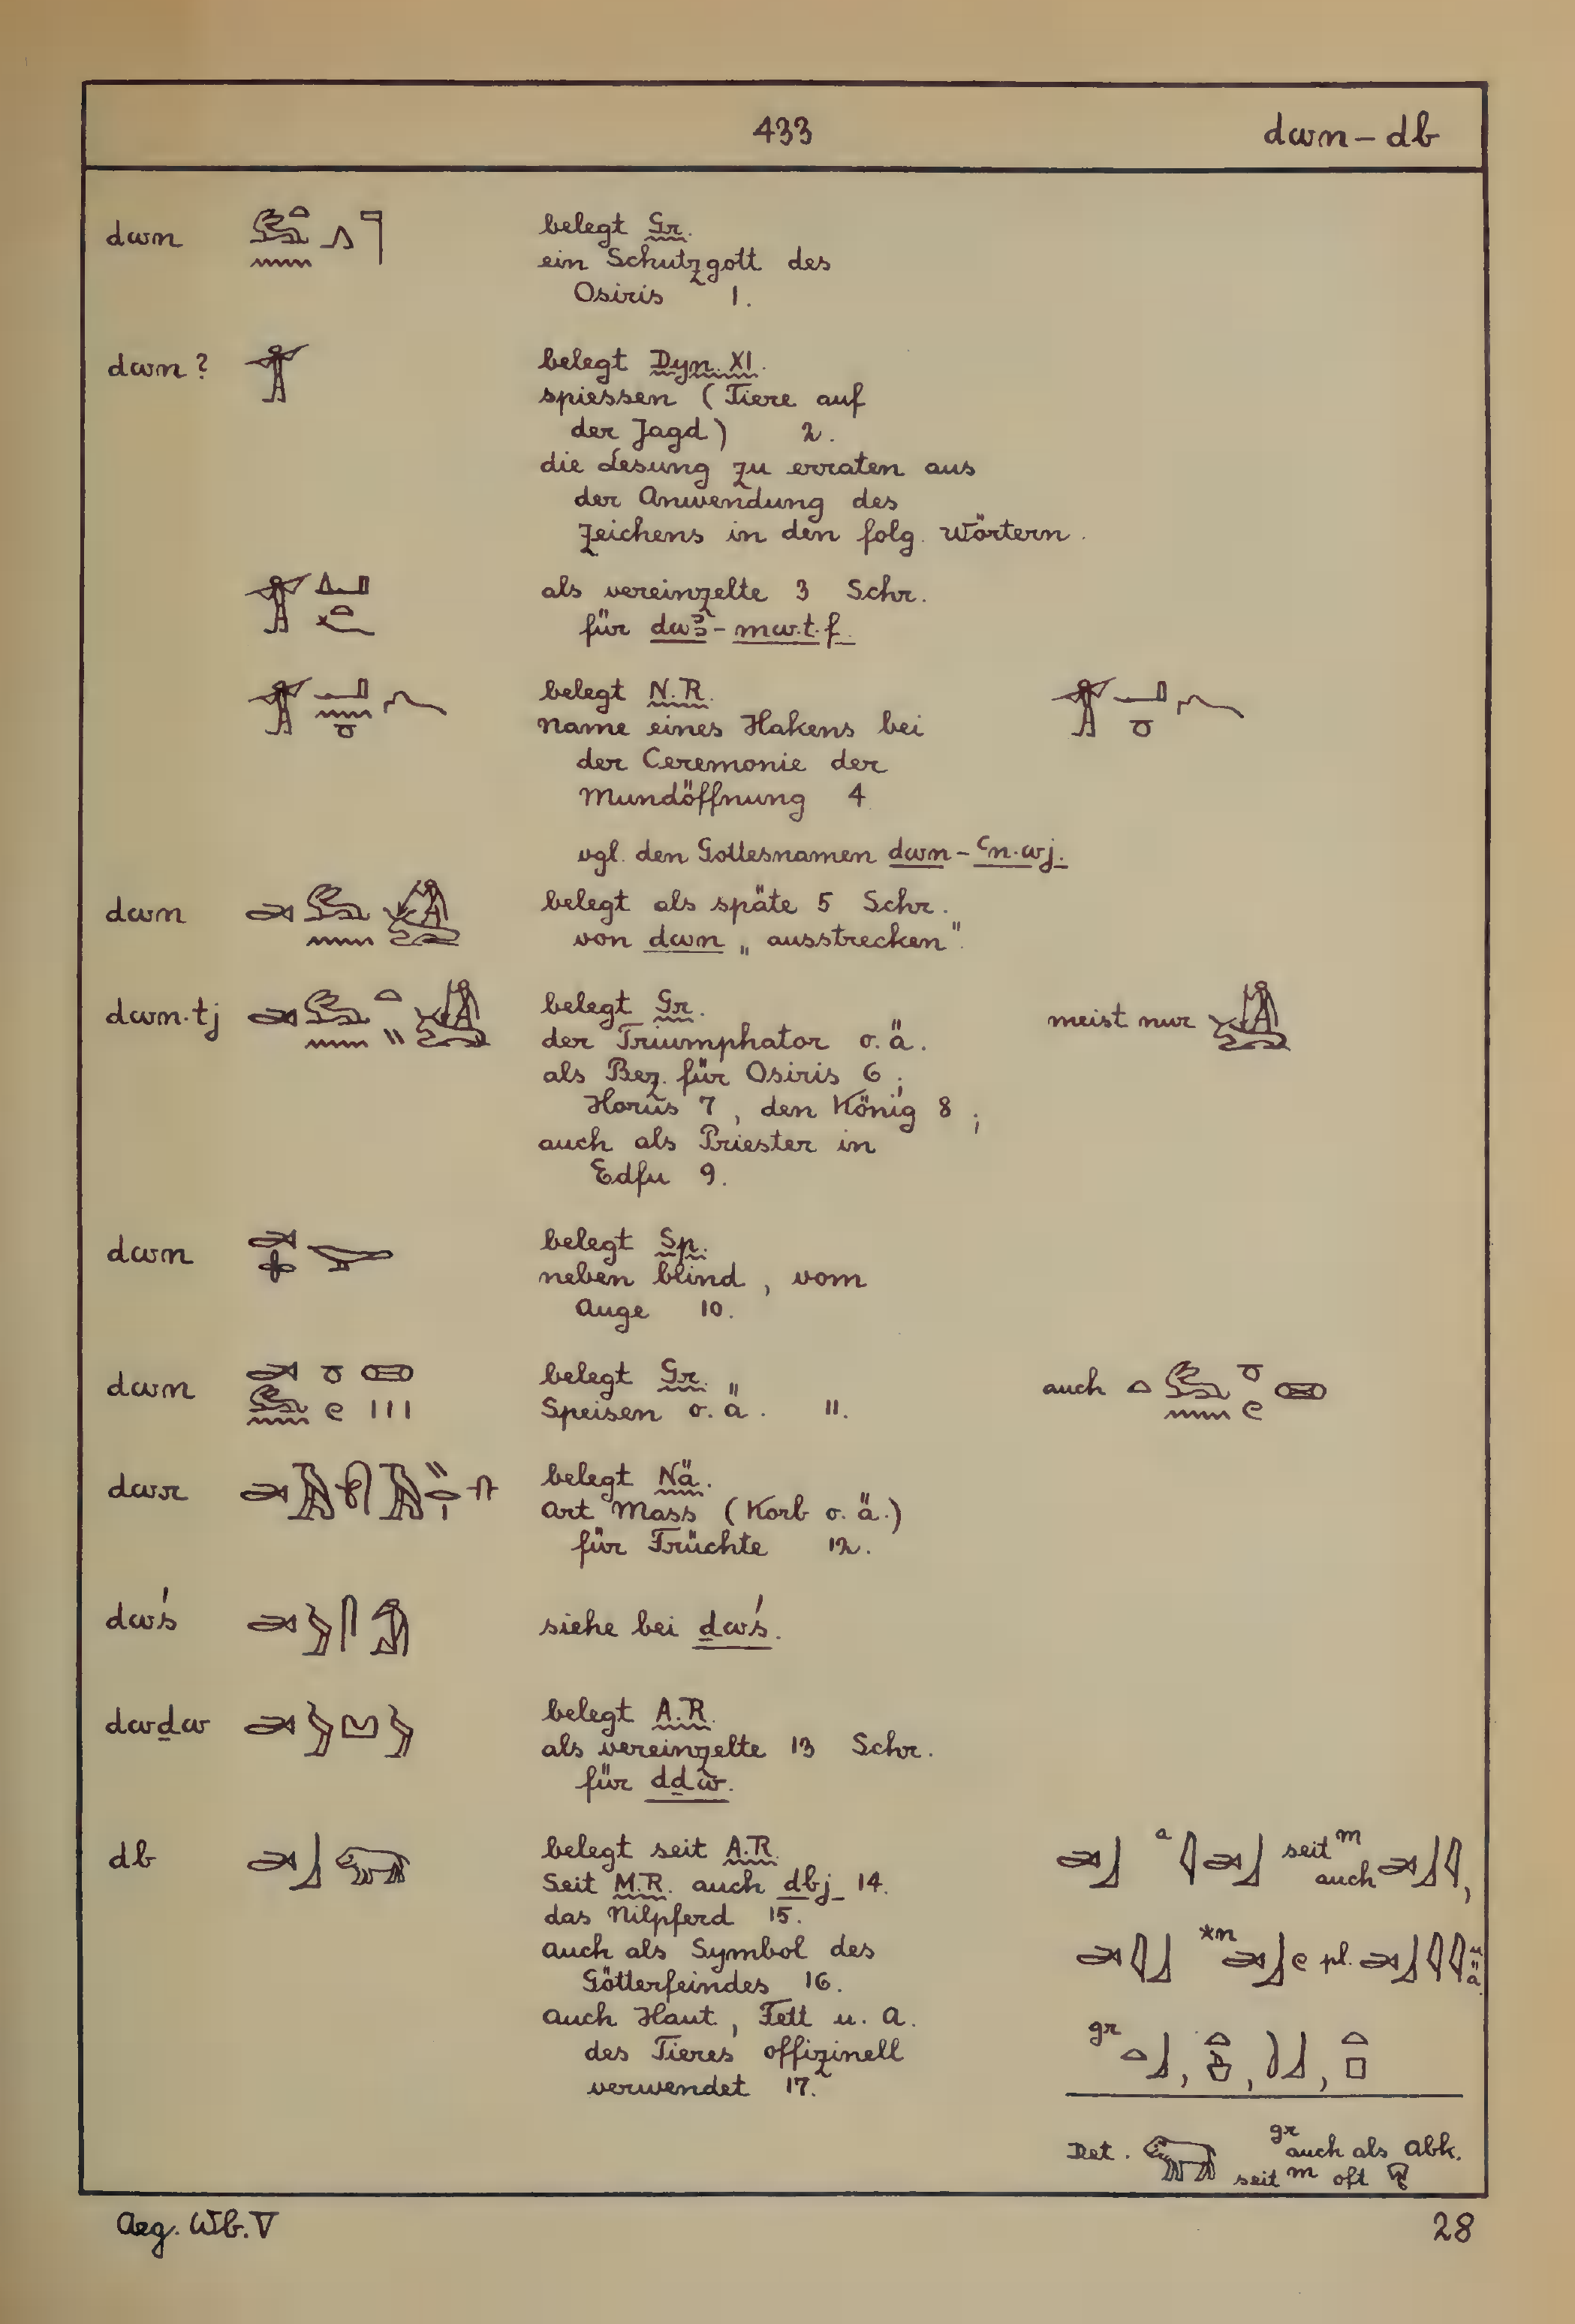 433 dwn – db
dwn belegt Gr.
ein Schutzgott des
Osiris 1.
dwn? belegt Dyn. XI.
spiessen (Tiere auf
der Jagd) 2.
die Lesung zu erraten aus
der Anwendung des
Zeichens in den folg. Wörtern.
als vereinzelte 3 Schr.
für dwꜣ-mw.t.f.
belegt N.R.
Name eines Hakens bei
der Ceremonie der
Mundöffnung 4
vgl. den Gottesnamen dwn-ꜥn.wj.
dwn belegt als späte 5 Schr.
von dwn „ausstrecken".
dwn.tj belegt Gr. meist nur
der Triumphator o.ä.
als Bez. für Osiris 6;
Horus 7, den König 8;
auch als Priester in
Edfu 9.
dwn belegt Sp.
neben blind, vom
Auge 10.
dwn belegt Gr. auch
Speisen o.ä. 11.
dwr belegt Nä.
Art Mass (Korb o.ä.)
für Früchte 12.
dwś siehe bei ḏwś.
dwḏw belegt A.R.
als vereinzelte 13 Schr.
für dḏw.
db belegt seit A.R. a seit m auch
Seit M.R. auch dbj 14.
das Nilpferd 15.
auch als Symbol des *n pl. u.ä.
Götterfeindes 16.
auch Haut, Fett u. A. gr
des Tieres offizinell
verwendet 17.
Det. gr auch als Abk.
seit m oft
Aeg. Wb. V 28